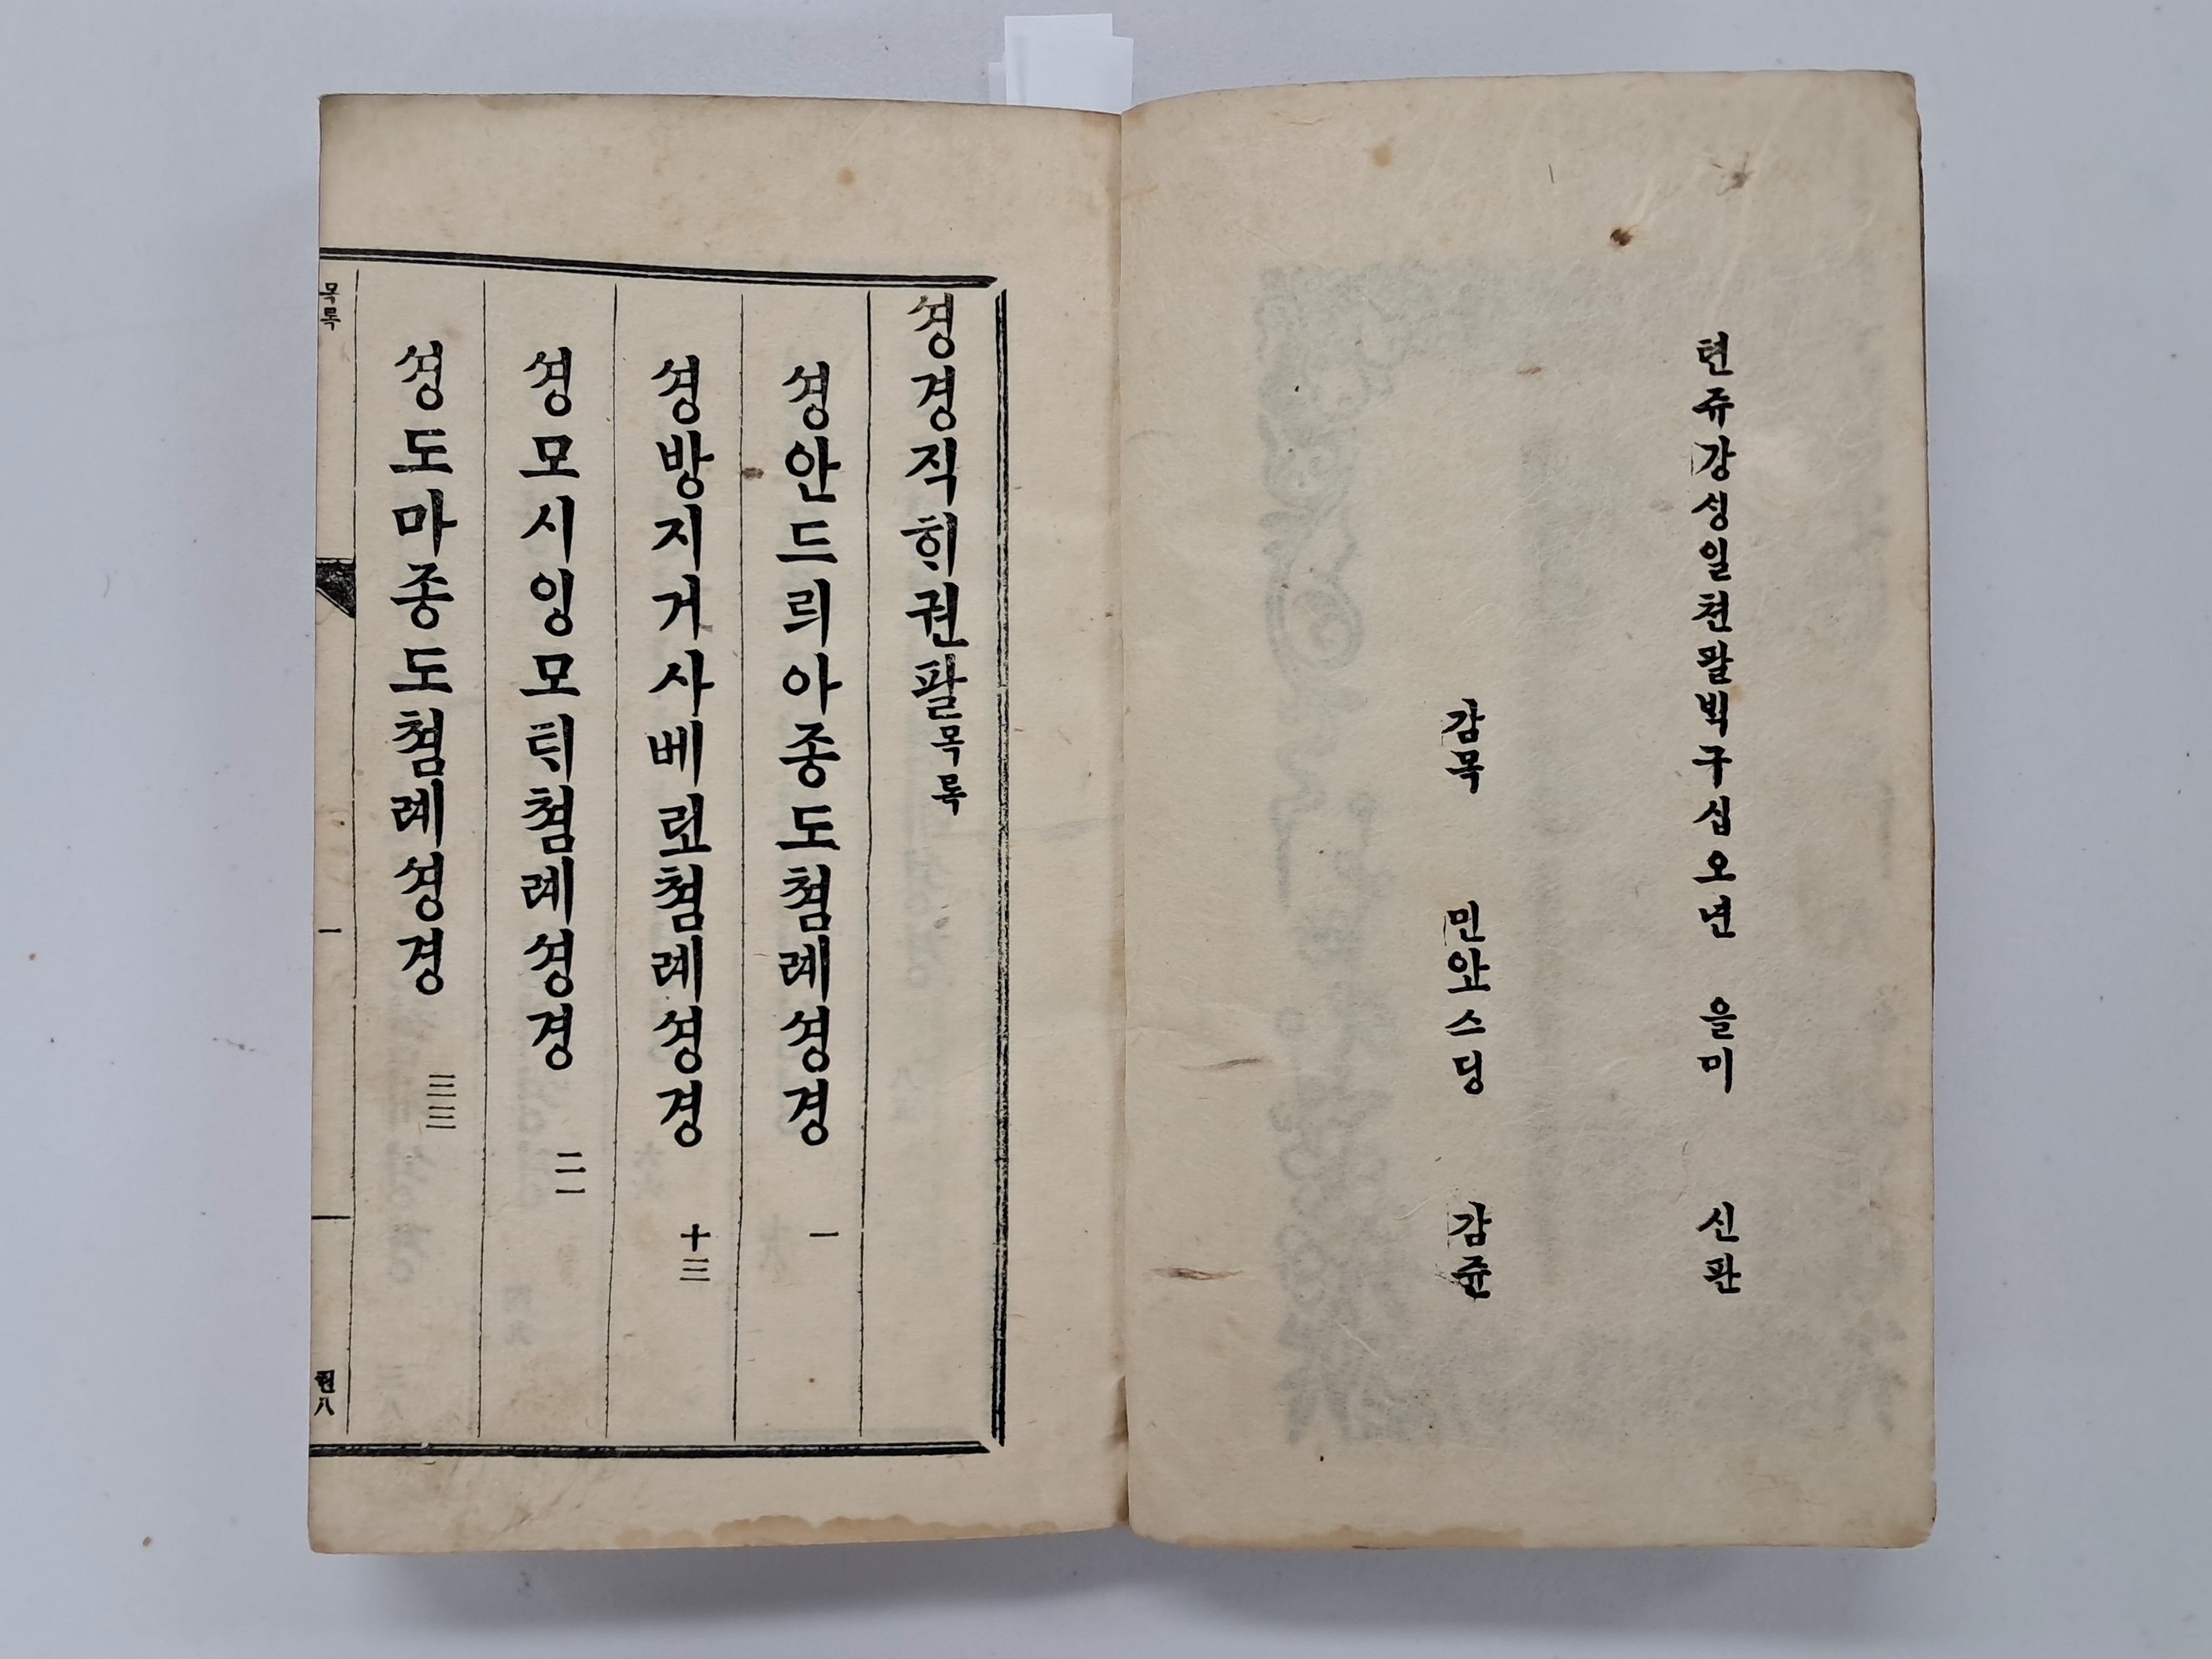 텬쥬강싱일쳔팔ᄇᆡᆨ구십오년 을미 신판
감목 민아오스딩 감쥰
셩경직ᄒᆡ권팔목록
셩안드릐아종도쳠례셩경 一
셩방지거사베리오쳠례셩경 十三
셩모시잉모ᄐᆡ쳠례셩경 二一
셩도마종도쳠례셩경 三三
목록 一 권八